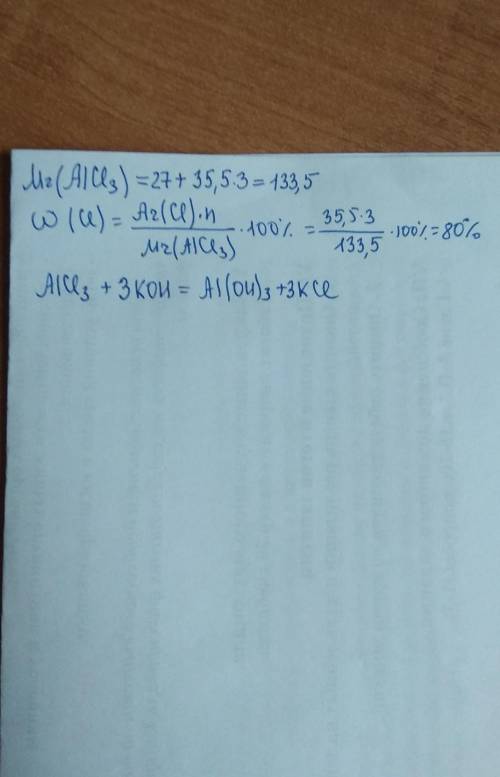 Mr(AlCl₃) = 27 + 35,5·3 = 133,5
ω(Cl) = Ar(Cl)·n / Mr(AlCl₃) ·100% = 35,5·3 / 133,5 ·100% = 80%
AlCl₃ + 3KOH = Al(OH)₃ + 3KCl